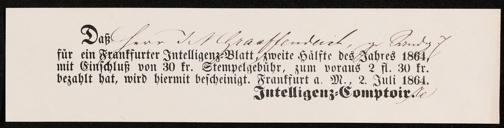 Daß Herr
für ein Frankfurter Intelligenz-Blatt, zweite Hälfte des Jahres 1864,
mit Einschluß von 30 kr. Stempelgebühr, zum voraus 2 fl. 30 kr.
bezahlt hat, wird hiermit bescheinigt. Frankfurt a. M., 2. Juli 1864.
Intelligenz-Comptoir.